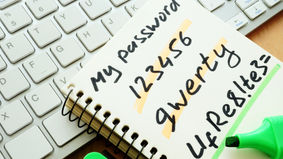 My password
123456
qwerty
U+Re8Ites=